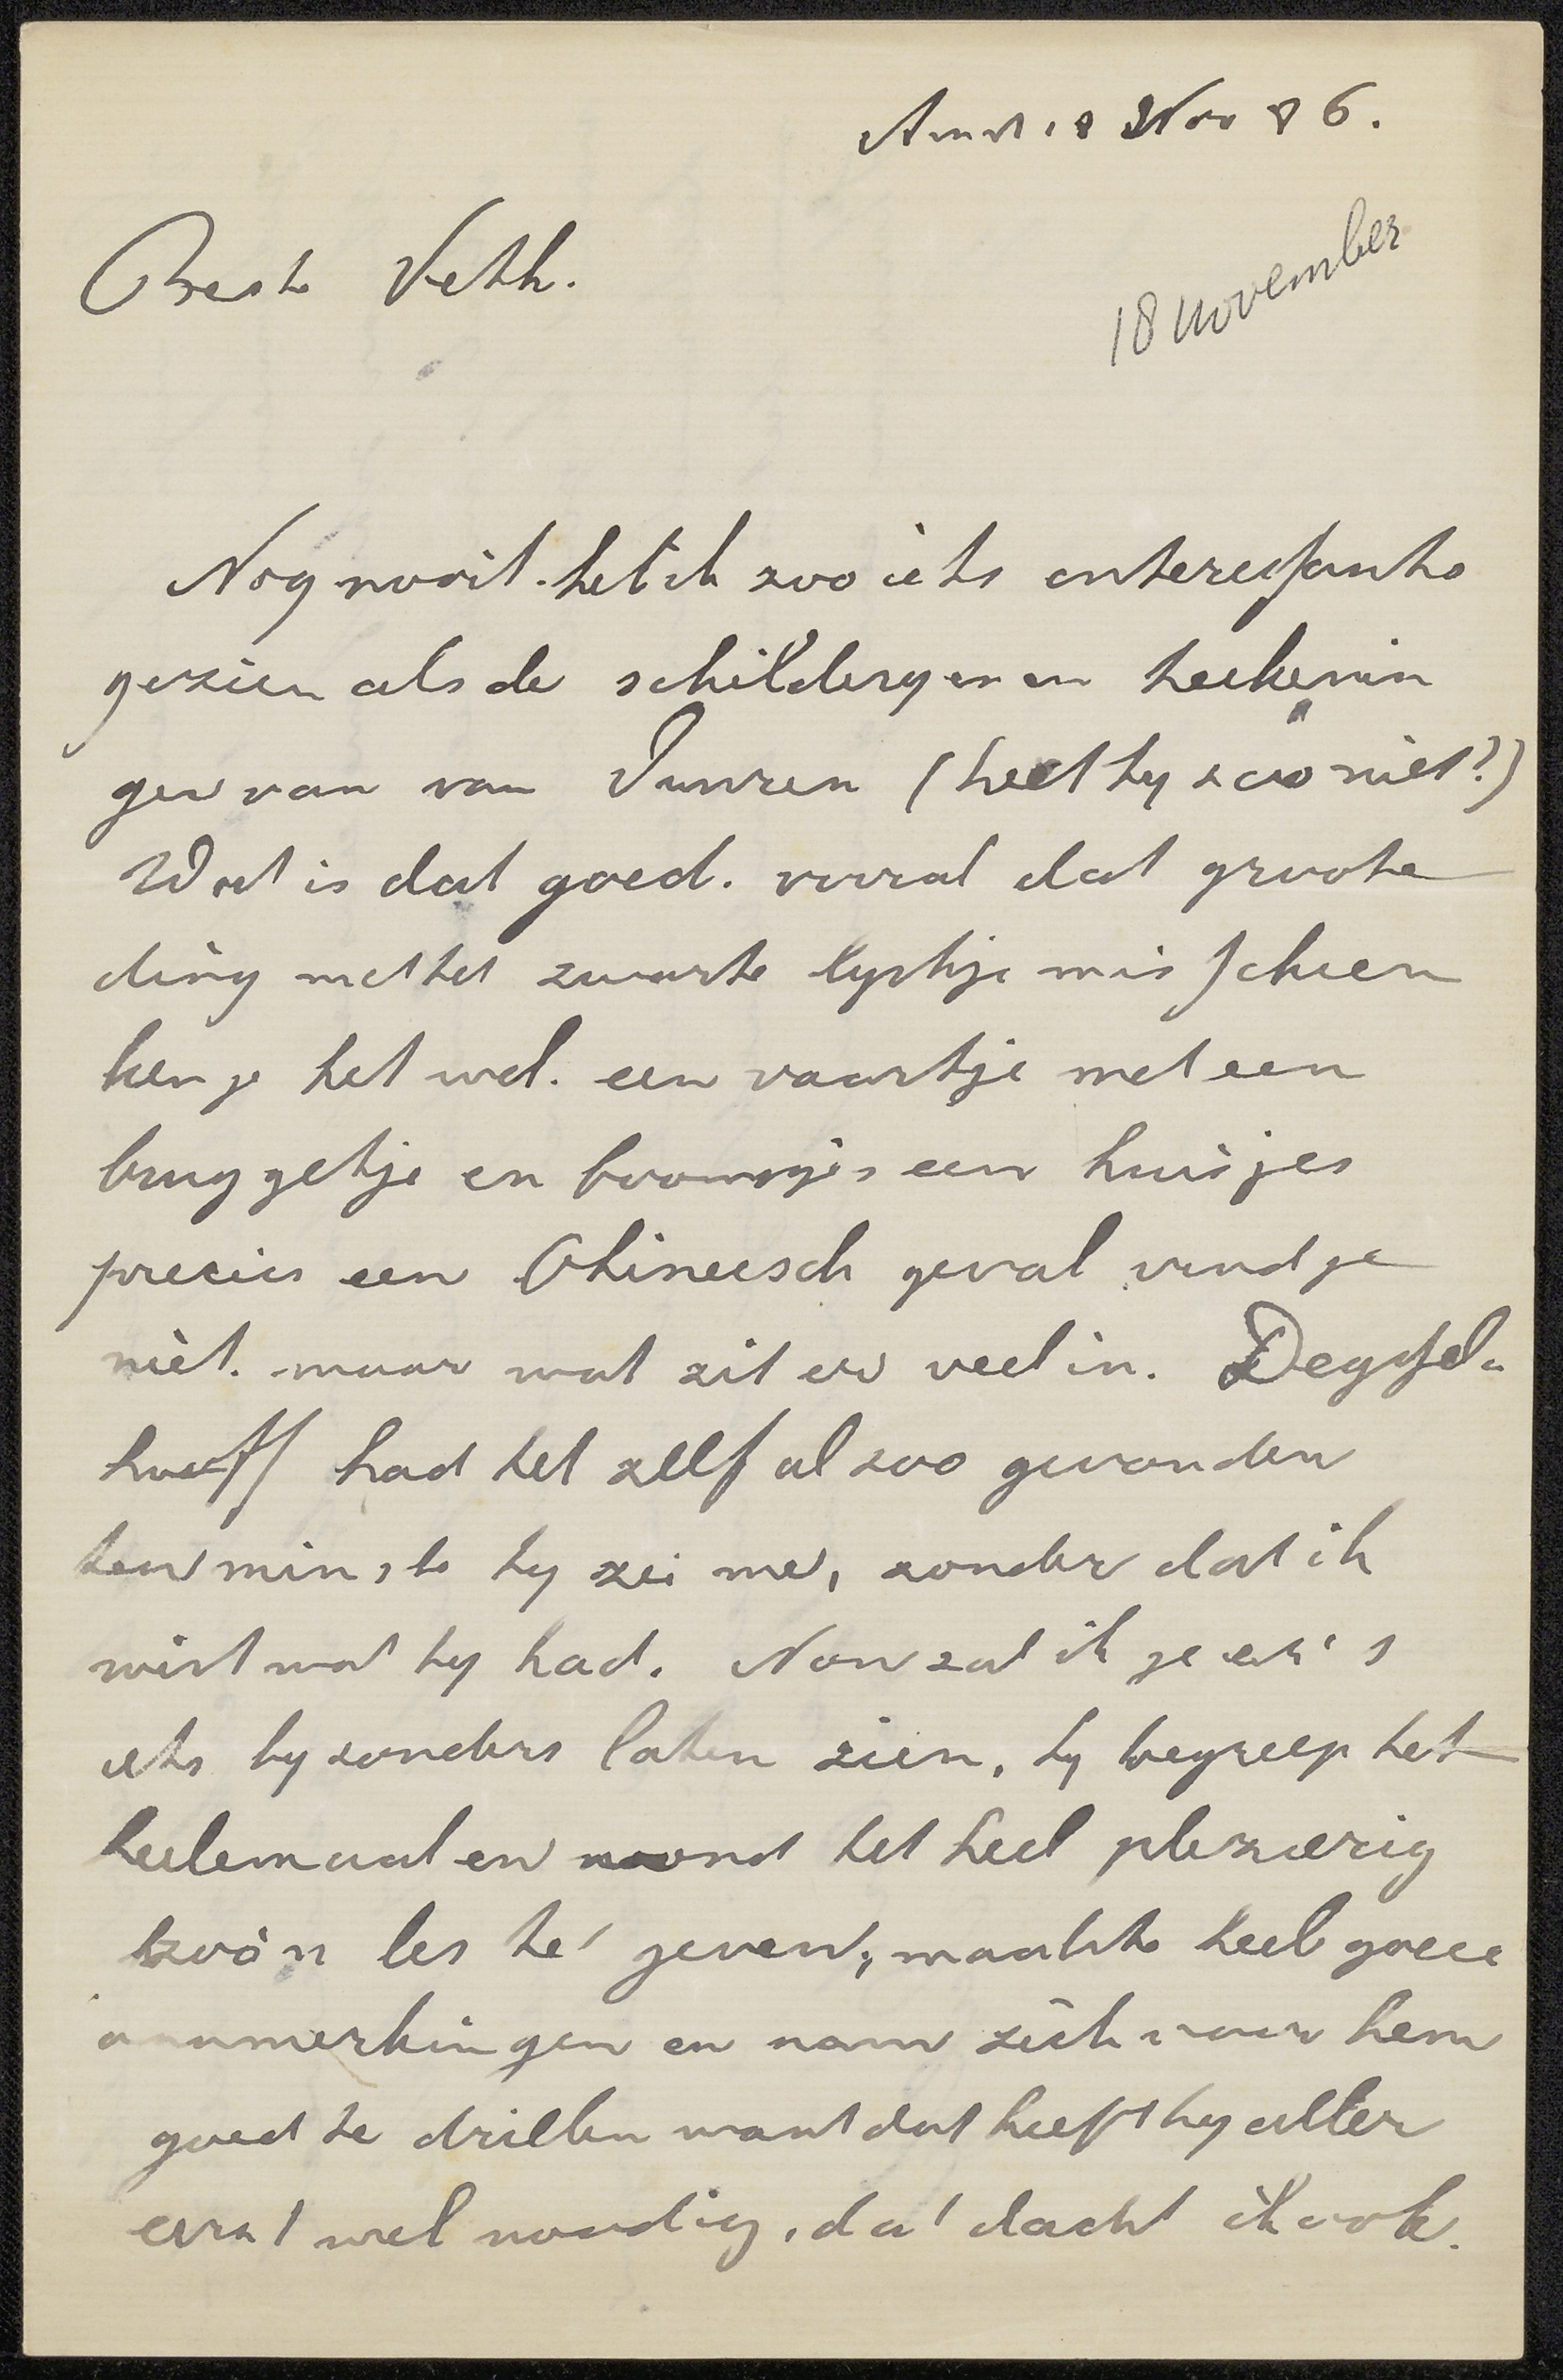 Amst 18 Nov 86.
18 november
Beste Veth.
Nog nooit heb ik zoo iets interessants
gezien als de schilderyen en teekenin
gen van van Duuren (heet hy zoo niet?)
Wat is dat goed. vooral dat groote
ding met het zwarte lystje misschien
ken je het wel. een vaartje met een
bruggetje en boompjes een huisjes
precies een Chineesch geval vind je
niet. maar wat zit er veel in. Deysel
hoeff had het zelf al zoo gevonden
tenminste hy zei me, zonder dat ik
wist wat hy had. Nou zal ik je eer's
iets byzonders laten zien, hy begreep het
heelemaal en vond het heel plezierig
zoo'n les te geven, maakte heel goeie
aanmerkingen en nam zich voor hem
goed te drillen want dat heeft hy aller
eerst wel noodig, dat dacht ik ook.